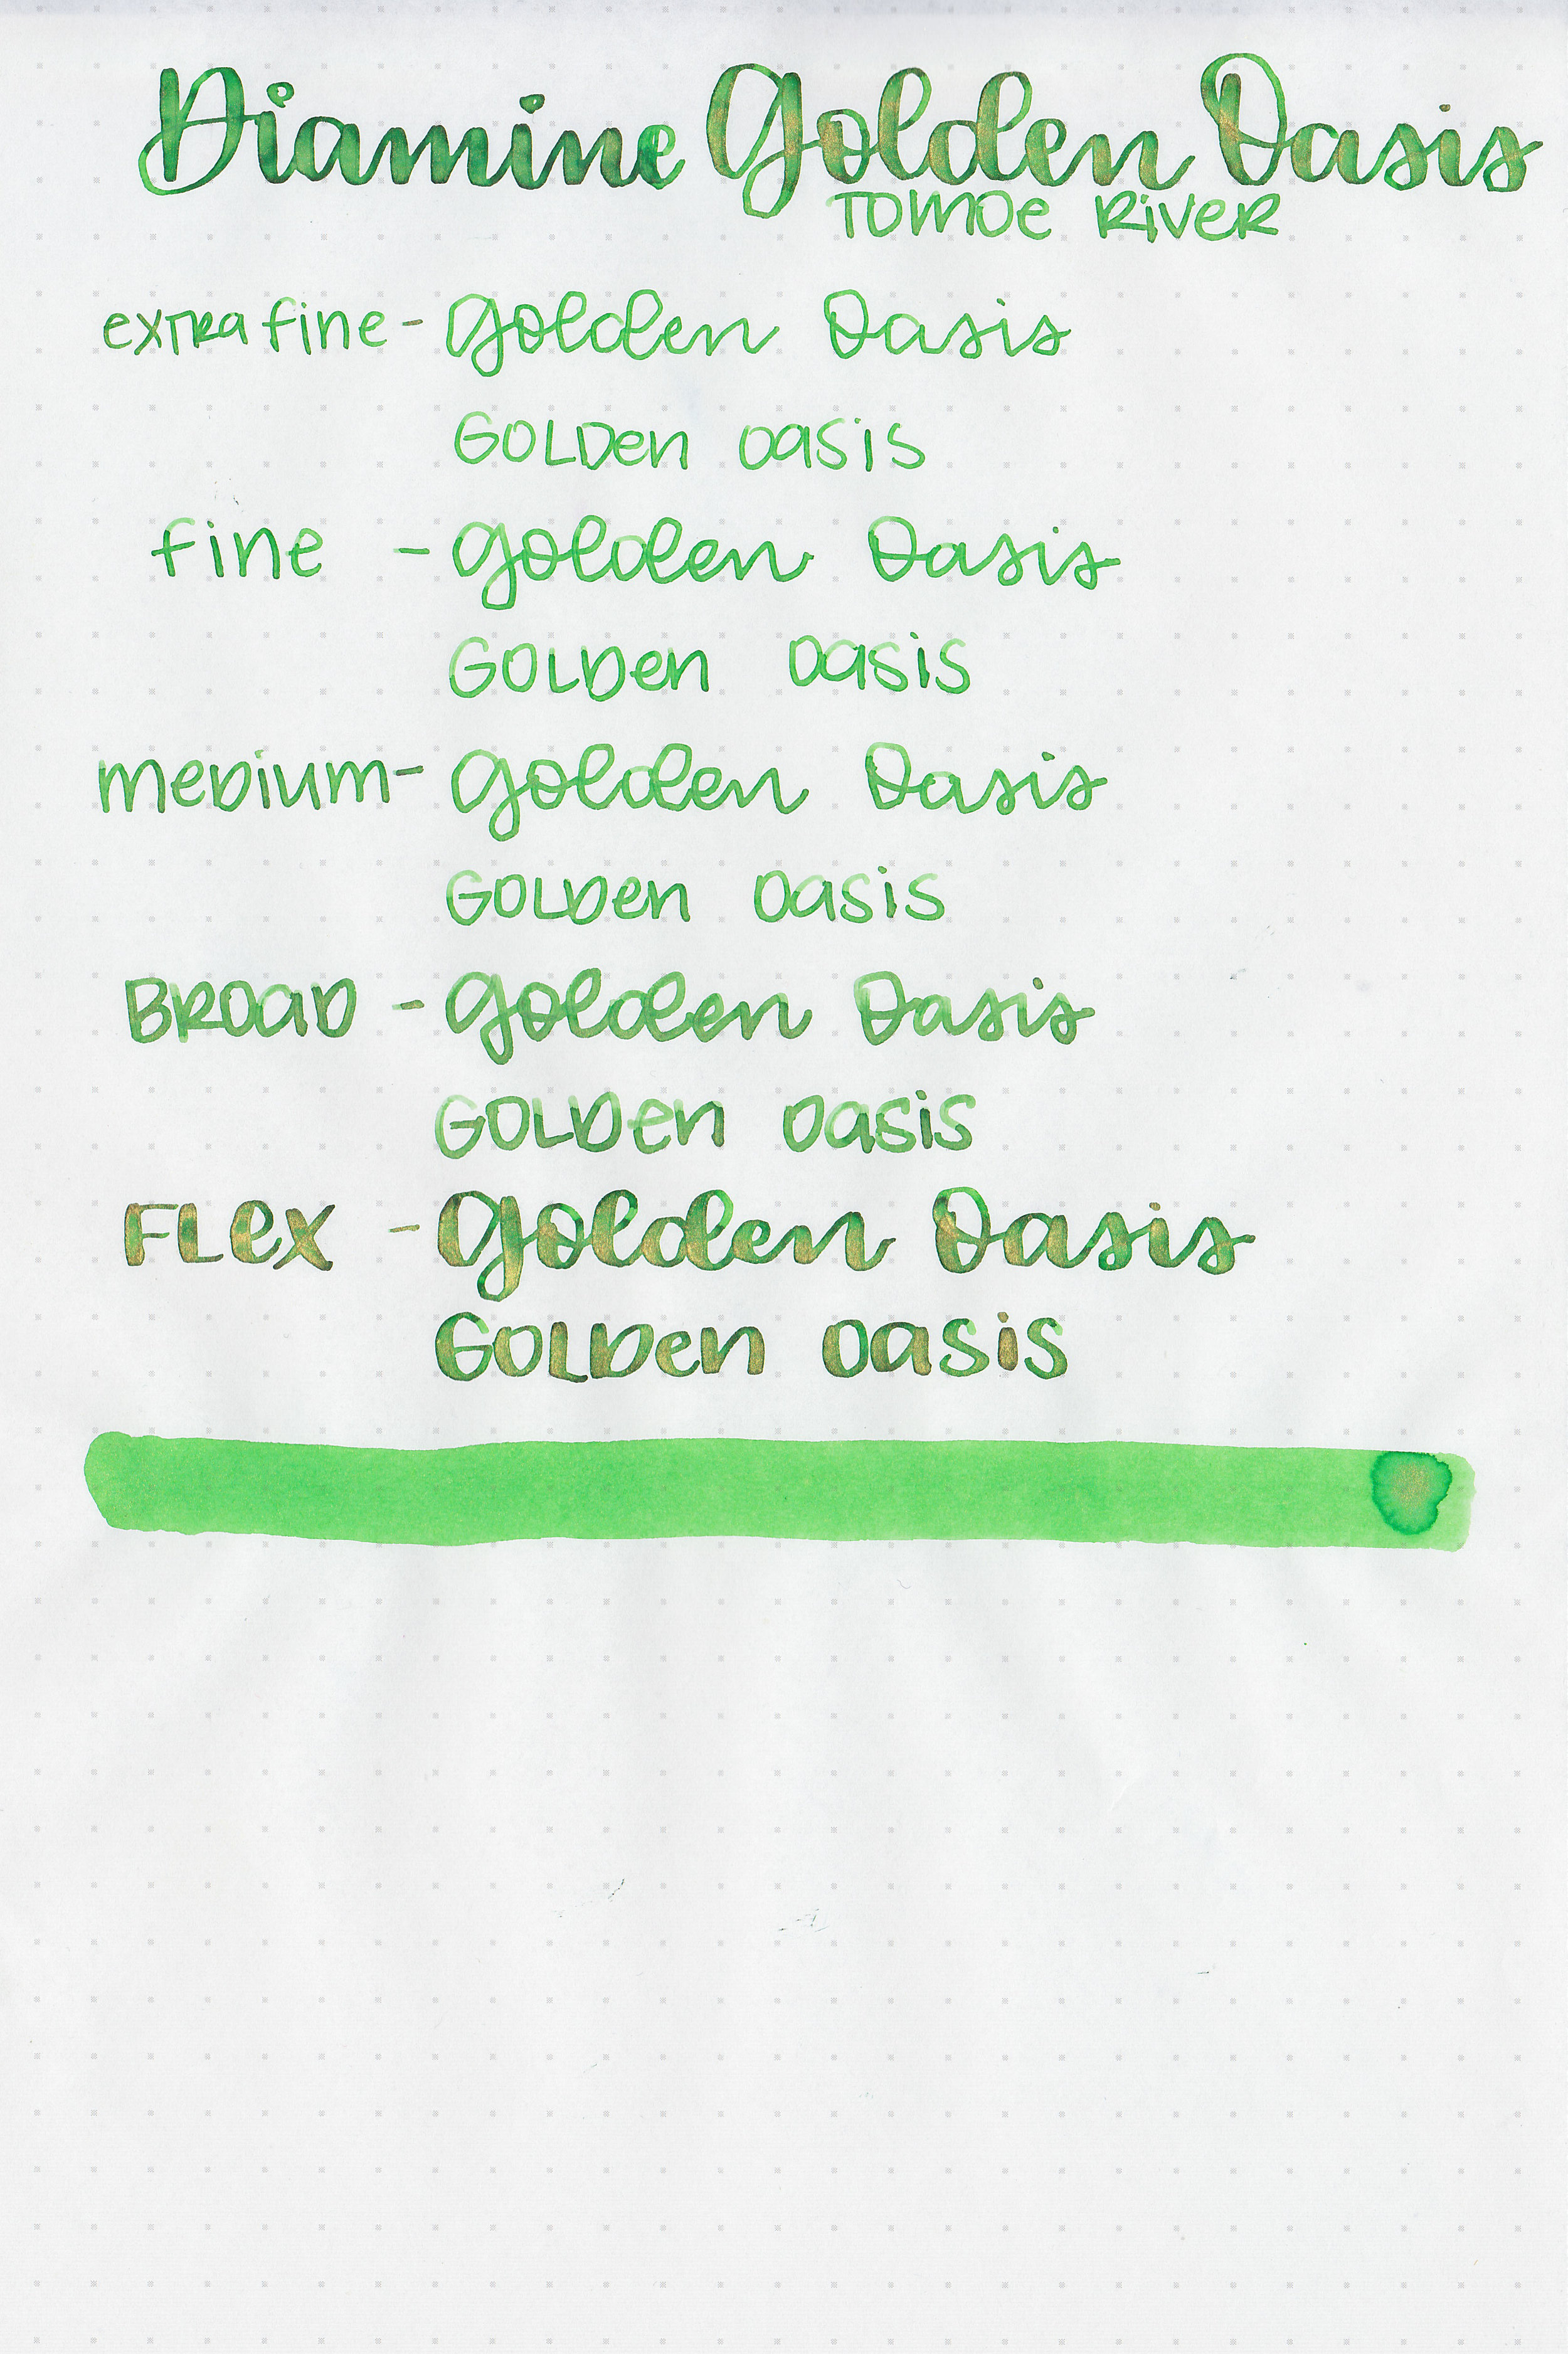 Diamine Golden Oasis
Tomoe River
extra fine - Golden Oasis
Golden Oasis
fine - Golden Oasis
Golden Oasis
medium - Golden Oasis
Golden Oasis
Broad - Golden Oasis
Golden Oasis
Flex - Golden Oasis
Golden Oasis